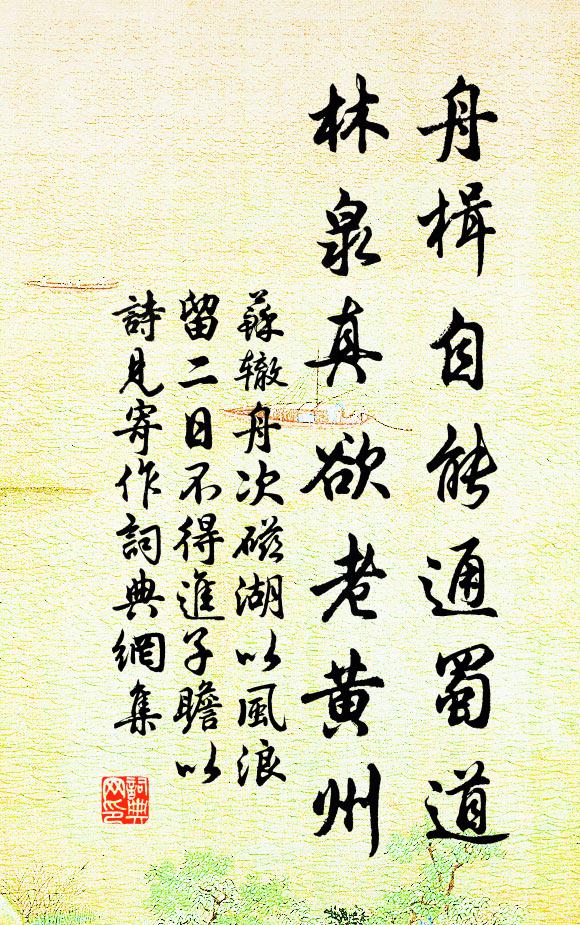 舟楫自能通蜀道
林泉真欲老黄州
蘇轍舟次磁湖以風浪
留二日不得進子瞻以
詩見寄作詞典網集
詞典
网印